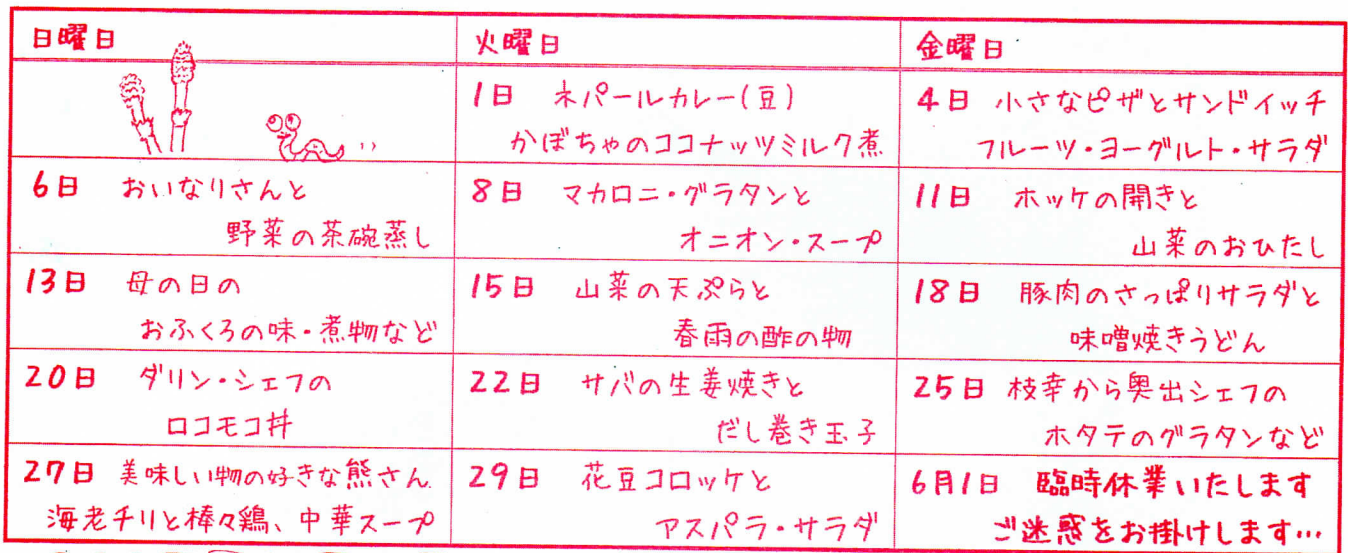 日曜日
火曜日
金曜日
1日 ネパールカレー(豆)
かぼちゃのココナッツミルク煮
4日 小さなピザとサンドイッチ
フルーツ・ヨーグルト・サラダ
6日 おいなりさんと
野菜の茶碗蒸し
8日 マカロニ・グラタンと
オニオン・スープ
11日 ホッケの開きと
山菜のおひたし
13日 母の日の
おふくろの味・煮物など
15日 山菜の天ぷらと
春雨の酢の物
18日 豚肉のさっぱりサラダと
味噌焼きうどん
20日 ダリン・シェフの
ロコモコ丼
22日 サバの生姜焼きと
だし巻き玉子
25日 枝幸から奥出シェフの
ホタテのグラタンなど
27日 美味しい物の好きな熊さん
海老チリと棒々鶏、中華スープ
29日 花豆コロッケと
アスパラ・サラダ
6月1日 臨時休業いたします
ご迷惑をお掛けします…